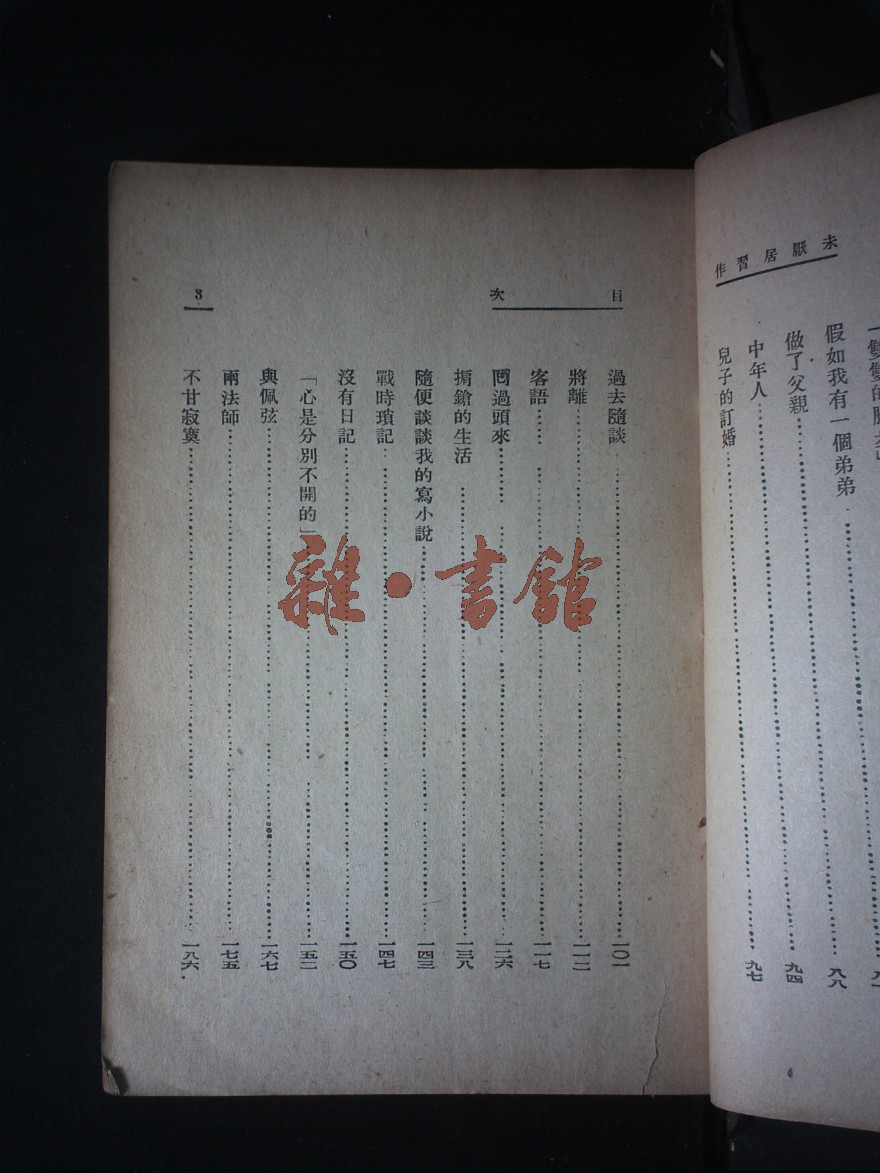 未厭居習作
假如我有一個弟弟……八八
做了父親……九四
中年人……九七
兒子的訂婚……
目次
3
過去隨談……一〇一
將離……一一二
客語……一一七
回過頭來……一二六
掮鎗的生活……一三八
隨便談談我的寫小說……一四三
戰時瑣記……一四七
沒有日記……一五〇
「心是分別不開的」……一五二
與佩弦……一六七
兩法師……一七五
不甘寂寞……一八六
雜·書館